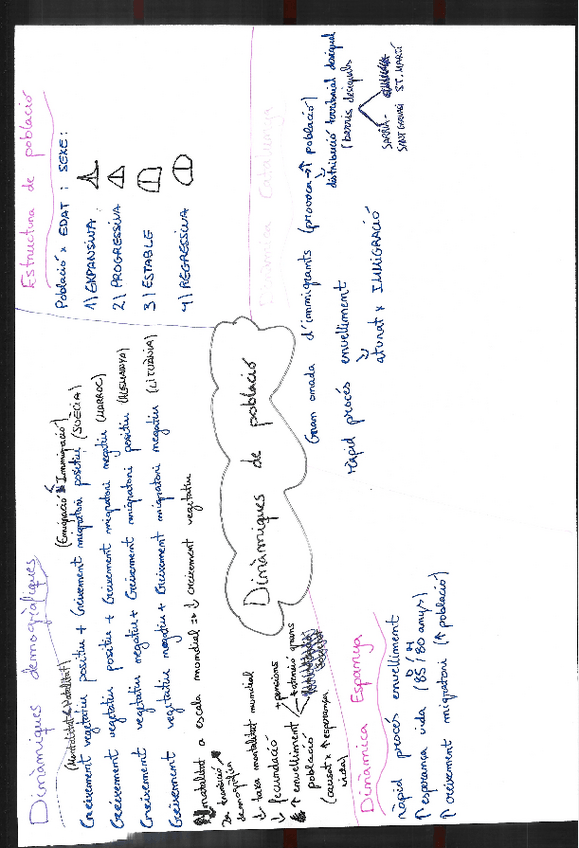 Dinàmiques demogràfiques
(Mortalitat < Natalitat) (Emigració < Immigració)
Creixement vegetatiu positiu + Creixement migratori positiu (SUÈCIA)
Creixement vegetatiu positiu + Creixement migratori negatiu (MARROC)
Creixement vegetatiu negatiu + Creixement migratori positiu (ALEMANYA)
Creixement vegetatiu negatiu + Creixement migratori negatiu (LITUÀNIA)
natalitat a escala mundial => ↓ creixement vegetatiu
2a transició
demogràfica
↓ taxa mortalitat mundial
↓ fecundació
↑ envelliment
població
+ pensions
+ atenció grans
(causat x ↑ esperança
vida)
Estructura de població
Població x EDAT : SEXE:
1) EXPANSIVA
2) PROGRESSIVA
3) ESTABLE
4) REGRESSIVA
Dinàmiques de població
Dinàmica Espanya
ràpid procés envelliment
D / H
↑ esperança vida (85 / 80 anys)
↑ creixement migratori (↑ població)
Dinàmica Catalunya
Gran onada d'immigrants (provoca → ↑ població)
distribució territorial desigual
(barris desiguals
SARRIÀ-
SANT GERVASI
ST. MARTÍ
ràpid procés envelliment
aturat x IMMIGRACIÓ